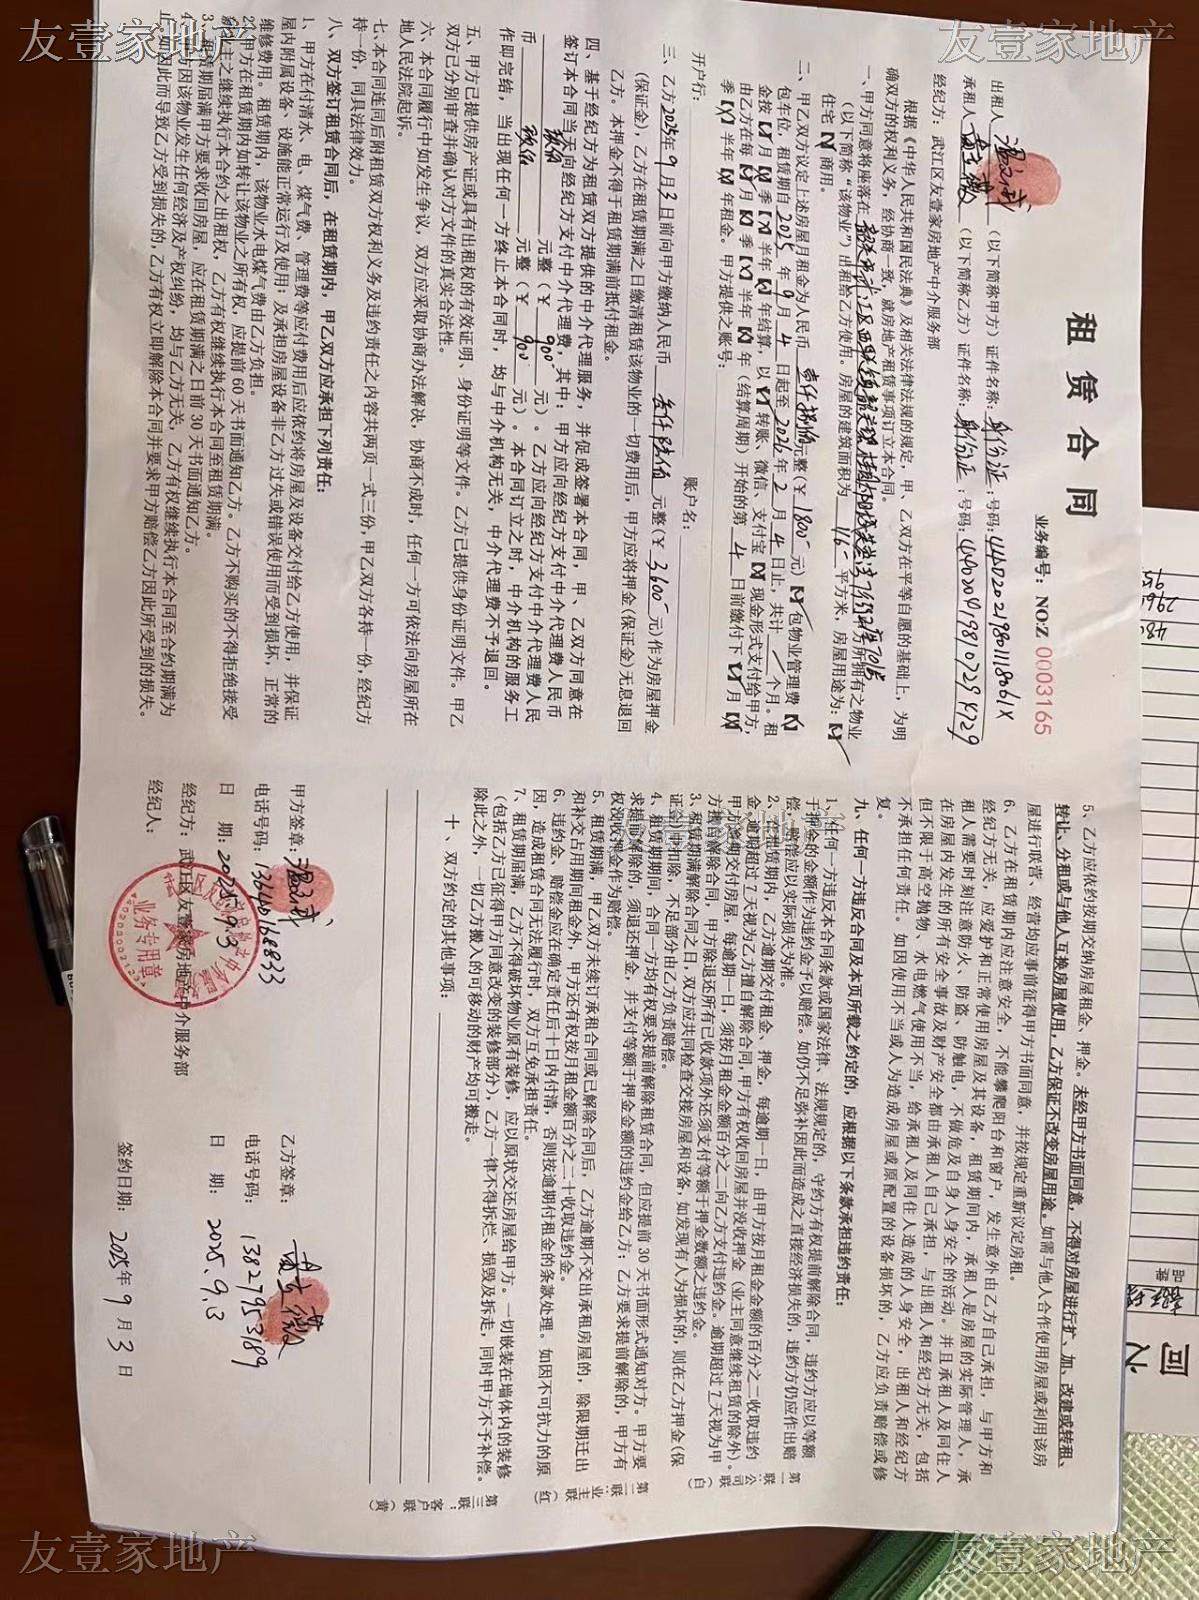 友壹家地产
友壹家地产
租赁合同
业务编号：NO:Z 0003165
出租人 （以下简称甲方）证件名称：身份证：号码：
承租人 （以下简称乙方）证件名称：身份证：号码：
经纪方：武江区友壹家房地产中介服务部
根据《中华人民共和国民法典》及相关法律法规的规定，甲、乙双方在平等自愿的基础上，为明
确双方的权利义务，经协商一致，就房地产租赁事项订立本合同。
一、甲方同意将座落在 房所拥有之物业
（以下简称“该物业”）出租给乙方使用。房屋的建筑面积为 116 平方米，房屋用途为：【✓】
住宅【×】商用。
二、甲乙双方议定上述房屋月租金为人民币 壹仟捌佰 元整（￥ 1800 元）【✓】包物业管理费【×】
包车位，租赁期自 2025 年 9 月 4 日起至 2026 年 2 月 4 日止，共计 / 个月。租
金按【✓】月【×】季【×】半年【×】年结算，以【✓】转账、微信、支付宝【×】现金形式支付给甲方，
由乙方在每【✓】月【×】季【×】半年【×】年（结算周期）开始的第 4 日前缴付下【✓】月【×】
季【×】半年【×】年租金。甲方提供之账号：
开户行： 账户名：
三、乙方 2025 年 9 月 3 日前向甲方缴纳人民币 叁仟陆佰 元整（￥ 3600 元）作为房屋押金
（保证金），乙方在租赁期满之日缴清租赁该物业的一切费用后，甲方应将押金（保证金）无息退回
乙方。本押金不得于租赁期满前抵付租金。
四、基于经纪方为租赁双方提供的中介代理服务，并促成签署本合同，甲、乙双方同意在
签订本合同当天向经纪方支付中介代理费，其中：甲方应向经纪方支付中介代理费人民币
玖佰 元整（￥ 900 元）。乙方应向经纪方支付中介代理费人民
币 玖佰 元整（￥ 900 元）。本合同订立之时，中介机构的服务工
作即完结，当出现任何一方终止本合同时，均与中介机构无关，中介代理费不予退回。
五、甲方已提供房产证或具有出租权的有效证明、身份证明等文件。乙方已提供身份证明文件。甲乙
双方已分别审查并确认对方文件的真实合法性。
六、本合同履行中如发生争议，双方应采取协商办法解决，协商不成时，任何一方可依法向房屋所在
地人民法院起诉。
七、本合同连同后附租赁双方权利义务及违约责任之内容共两页一式三份，甲乙双方各持一份，经纪方
持一份，同具法律效力。
八、双方签订租赁合同后，在租赁期内，甲乙双方应承担下列责任：
1、甲方在付清水、电、煤气费、管理费等应付费用后应依约将房屋及设备交付给乙方使用，并保证
屋内附属设备、设施能正常运行及使用；及承担房屋设备非乙方过失或错误使用而受到损坏，正常的
维修费用。租赁期内，该物业水电煤气费由乙方负担。
2、甲方在租赁期内如转让该物业之所有权，应提前 60 天书面通知乙方。乙方不购买的不得拒绝接受
新业主之继续执行本合约之出租权，乙方有权继续执行本合同至租赁期满。
3、租赁期届满甲方要求收回房屋，应在租赁期满之日前 30 天书面通知乙方。
4、甲方因该物业发生任何经济及产权纠纷，均与乙方无关，乙方有权继续执行本合同至合约期满为
止，如因此而导致乙方受到损失的，乙方有权立即解除本合同并要求甲方赔偿乙方因此所受到的损失。
5、乙方应依约按期交纳房屋租金、押金。未经甲方书面同意，不得对房屋进行扩、加、改建或转租、
转让、分租或与他人互换房屋使用，乙方保证不改变房屋用途。如需与他人合作使用房屋或利用该房
屋进行联营、经营均应事前征得甲方书面同意，并按规定重新议定房租。
6、乙方在租赁期内应注意安全，不能攀爬阳台和窗户，发生意外由乙方自己承担，与甲方和
经纪方无关，应爱护和正常使用房屋及其设备，租赁期间内，承租人是房屋的实际管理人，承
租人需要时刻注意防火、防盗、防触电，不做危及自身人身安全的活动。并且承租人及同住人
在房屋内发生的所有安全事故及财产安全都由承租人自己承担，与出租人和经纪方无关，包括
但不限于高空抛物、水电燃气使用不当，给承租人及同住人造成的人身安全，出租人和经纪方
不承担任何责任。如因使用不当或人为造成房屋或原配置的设备损坏的，乙方应负责赔偿或修
复。
九、任何一方违反合同及本页所载之约定的，应根据以下条款承担违约责任：
1、任何一方违反本合同条款或国家法律、法规规定的，守约方有权提前解除合同，违约方应以等额
于押金的金额作为违约金予以赔偿。如仍不足弥补因此而造成之直接经济损失的，违约方仍应作出赔
偿，赔偿应以实际损失为准。
2、在租赁期内，乙方逾期交付租金、押金，每逾期一日，由甲方按月租金金额的百分之二收取违约
金，逾期超过 7 天视为乙方擅自解除合同，甲方有权收回房屋并没收押金（业主同意继续租赁的除外）。
甲方逾期交付房屋，每逾期一日，须按月租金金额百分之二向乙方支付违约金。逾期超过 7 天视为甲
方擅自解除合同，甲方除退还所有已收款项外还须支付等额于押金数额之违约金。
3、租赁期满解除合同之日，双方应共同检查交接房屋和设备，如发现有人为损坏的，则在乙方押金（保
证金）中扣除，不足部分由乙方负责赔偿。
4、租赁期期间，合同一方均有权要求提前解除租赁合同，但应提前 30 天书面形式通知对方。甲方要
求提前解除的，须退还押金，并支付等额于押金金额的违约金给乙方；乙方要求提前解除的，甲方有
权没收押金作为赔偿。
5、租赁期满，甲乙双方未续订承租合同或已解除合同后，乙方逾期不交出承租房屋的，除限期迁出
和补交占用期间租金外，甲方还有权按月租金额百分之二十收取违约金。
6、违约金、赔偿金应在确定责任后十日内付清，否则按逾期付租金的条款处理。如因不可抗力的原
因，造成租赁合同无法履行时，双方互免承担责任。
7、租赁期届满，乙方不得破坏物业原有装修，应以原状交还房屋给甲方。一切嵌装在墙体内的装修
（包括乙方已征得甲方同意改变的装修部分），乙方一律不得拆烂、损毁及拆走，同时甲方不予补偿。
除此之外，一切乙方搬入的可移动的财产均可搬走。
十、双方约定的其他事项：
第一联：公司联（白）
第二联：业主联（红）
第三联：客户联（黄）
甲方签章：
电话号码：13640168833
日 期：2025.9.3
经纪方：武江区友壹家房地产中介服务部
经纪人：
业务专用章
乙方签章：
电话号码：13827953189
日 期：2025.9.3
签约日期：2025 年 9 月 3 日
友壹家地产
友壹家地产